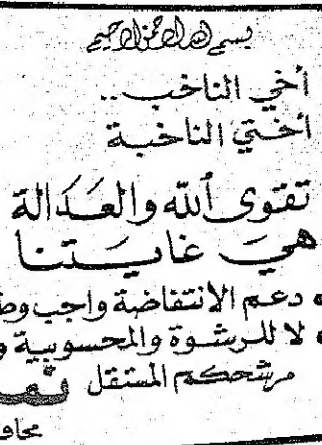 بسم الله الرحمن الرحيم
أخي الناخب..
أختي الناخبة
تقوى ألله والعدالة
هي غايتنا
دعم الانتفاضة واجب
لا للرشوة والمحسوبية و
مرشحكم المستقل